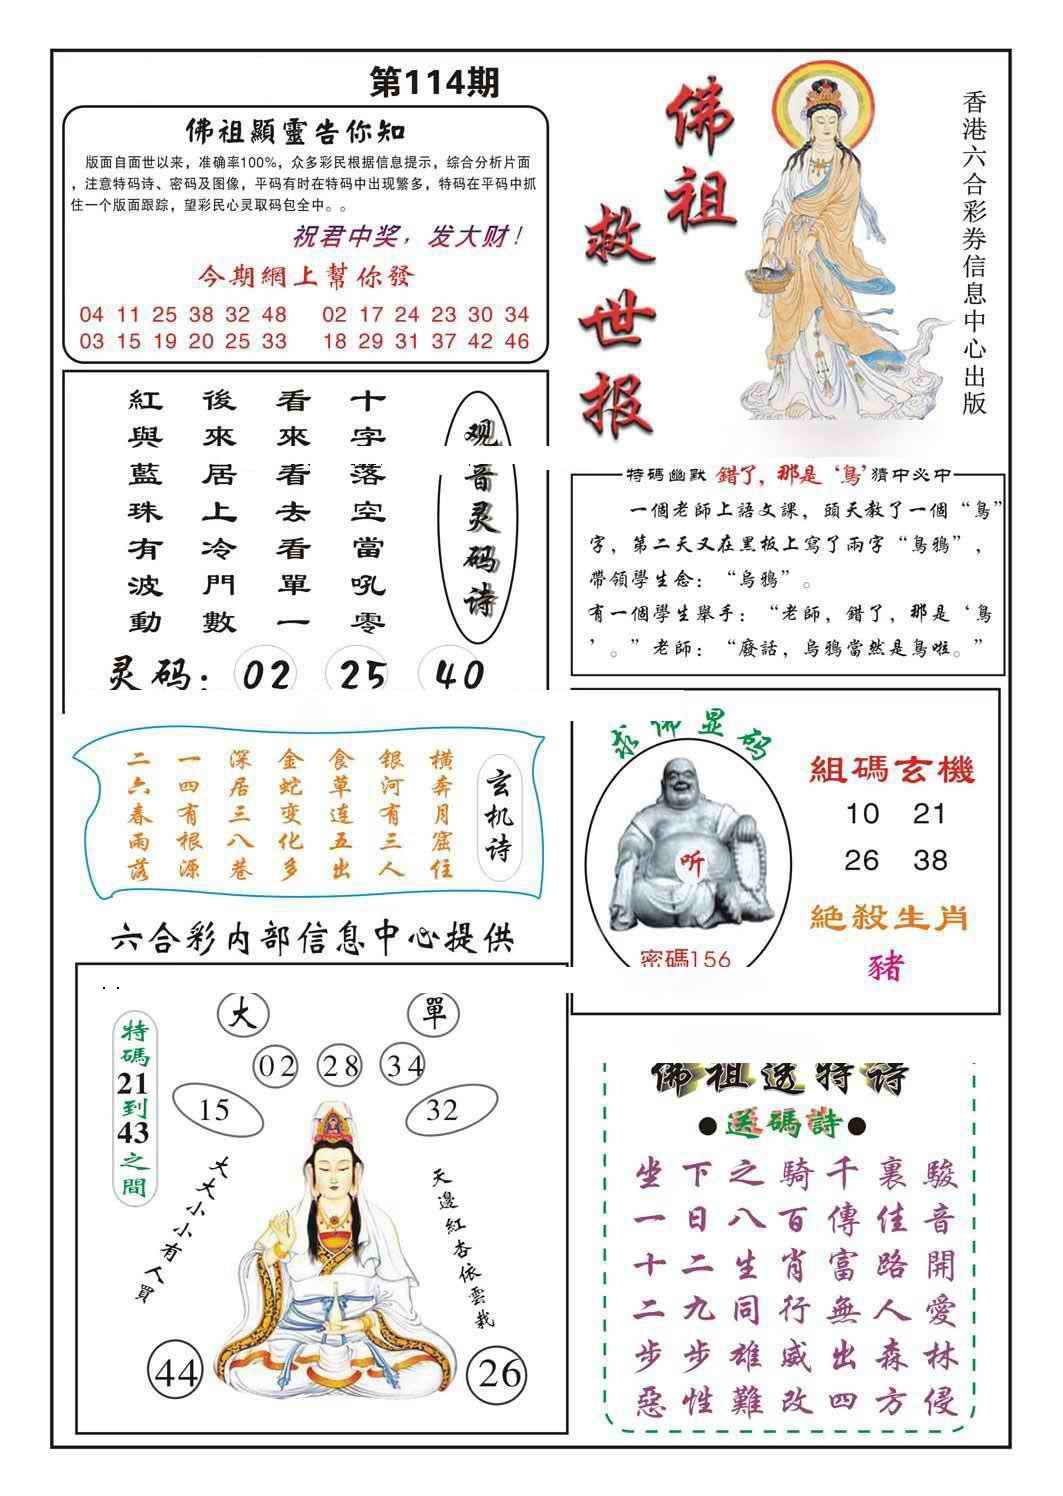 第114期
佛祖顯靈告你知
版面自面世以来，准确率100%，众多彩民根据信息提示，综合分析片面
，注意特码诗、密码及图像，平码有时在特码中出现繁多，特码在平码中抓
住一个版面跟踪，望彩民心灵取码包全中。。
祝君中奖，发大财！
今期網上幫你發
04 11 25 38 32 48 02 17 24 23 30 34
03 15 19 20 25 33 18 29 31 37 42 46
佛祖
救世报
香港六合彩券信息中心出版
观音灵码诗
十字落空當吼零
看來看去看單一
後來居上冷門數
紅與藍珠有波動
灵码：02 25 40
特碼幽默 錯了，那是‘鳥’猜中必中
一個老師上語文課，頭天教了一個“鳥”
字，第二天又在黑板上寫了兩字“烏鴉”，
帶領學生念：“烏鴉”。
有一個學生舉手：“老師，錯了，那是‘鳥
’。”老師：“廢話，烏鴉當然是鳥啦。”
玄机诗
横奔月窟住
银河有三人
食草连五出
金蛇变化多
深居三八巷
一四有根源
二六春雨落
求佛显码
听
密碼156
組碼玄機
10 21
26 38
絕殺生肖
豬
六合彩内部信息中心提供
特碼21到43之間
大 單
02 28 34
15 32
大大小小有人買
天邊紅杏依雲栽
44 26
佛祖透特诗
●送碼詩●
坐下之騎千裏駿
一日八百傳佳音
十二生肖富路開
二九同行無人愛
步步雄威出森林
惡性難改四方侵